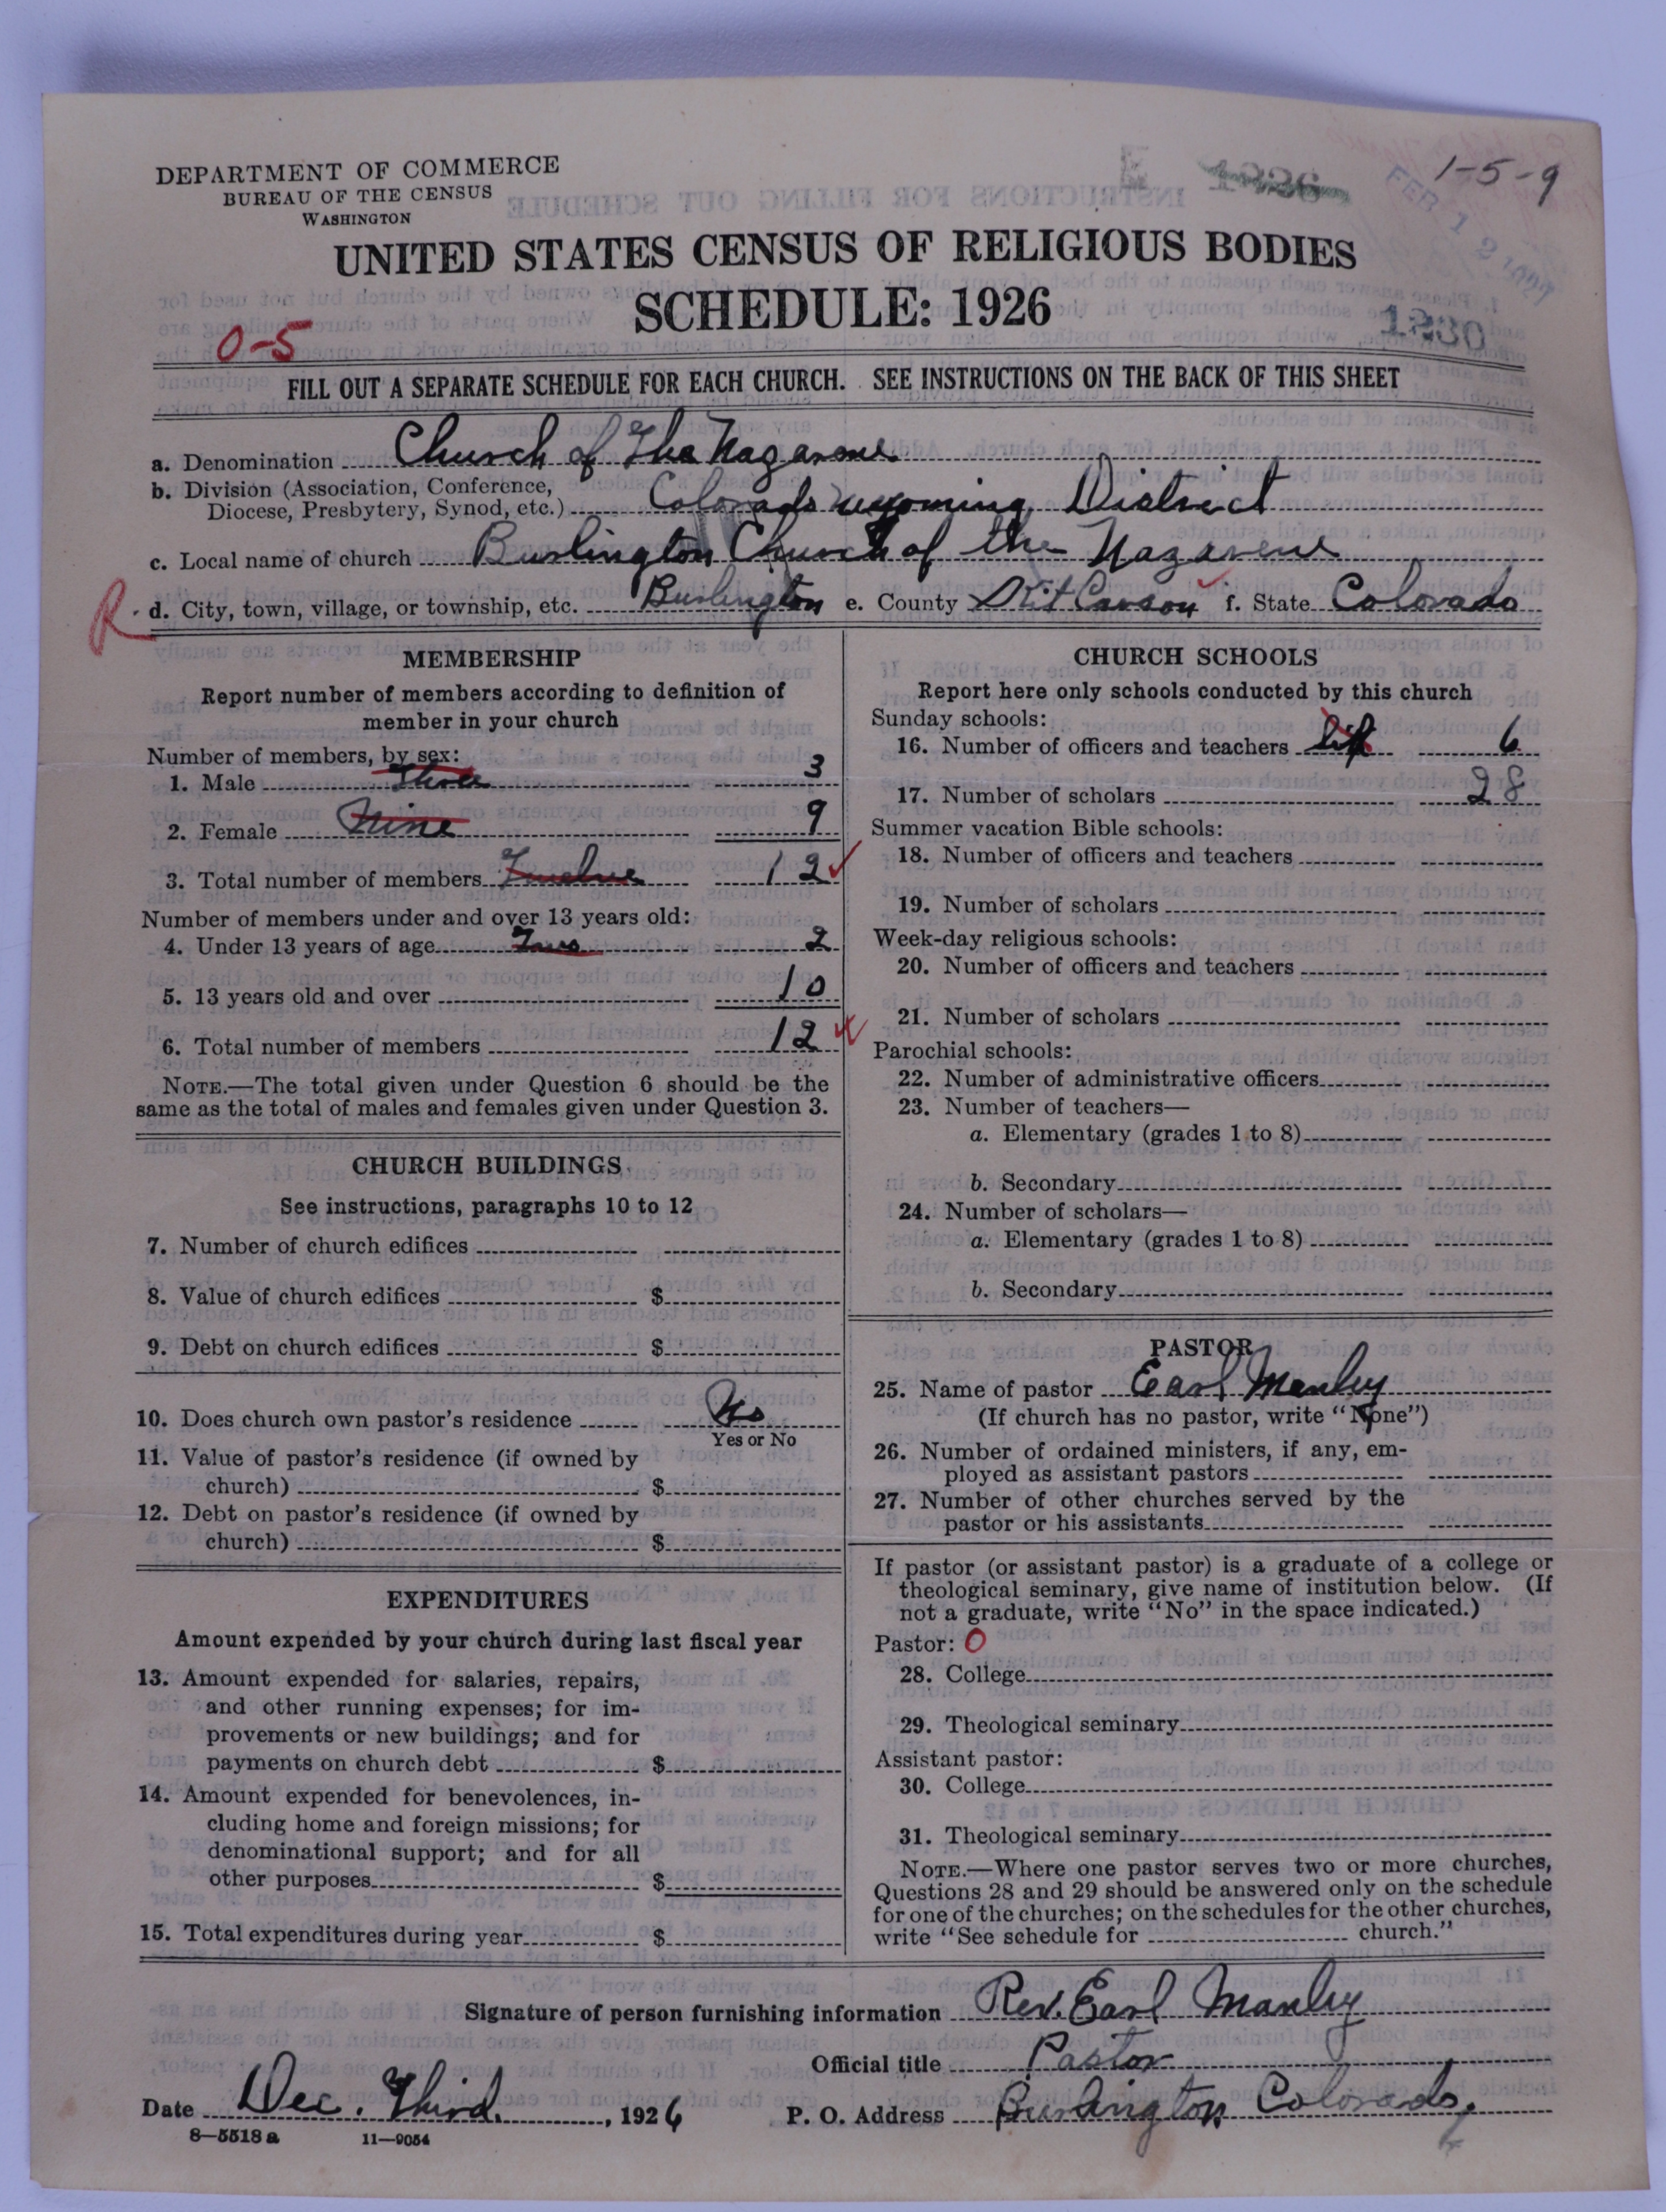 DEPARTMENT OF COMMERCE
BUREAU OF THE CENSUS
WASHINGTON
1-5-9
FEB 12
UNITED STATES CENSUS OF RELIGIOUS BODIES
SCHEDULE: 1926
0-5
1230
FILL OUT A SEPARATE SCHEDULE FOR EACH CHURCH. SEE INSTRUCTIONS ON THE BACK OF THIS SHEET
a. Denomination Church of The Nazarene
b. Division (Association, Conference,
Diocese, Presbytery, Synod, etc.) Colorado Wyoming District
c. Local name of church Burlington Church of the Nazarene
R d. City, town, village, or township, etc. Burlington e. County Kit Carson f. State Colorado
MEMBERSHIP
Report number of members according to definition of
member in your church
Number of members, by sex:
1. Male Three 3
2. Female Nine 9
3. Total number of members Twelve 12
Number of members under and over 13 years old:
4. Under 13 years of age Two 2
5. 13 years old and over 10
6. Total number of members 12
NOTE.—The total given under Question 6 should be the
same as the total of males and females given under Question 3.
CHURCH BUILDINGS
See instructions, paragraphs 10 to 12
7. Number of church edifices
8. Value of church edifices $
9. Debt on church edifices $
10. Does church own pastor's residence No
Yes or No
11. Value of pastor's residence (if owned by
church) $
12. Debt on pastor's residence (if owned by
church) $
EXPENDITURES
Amount expended by your church during last fiscal year
13. Amount expended for salaries, repairs,
and other running expenses; for im-
provements or new buildings; and for
payments on church debt $
14. Amount expended for benevolences, in-
cluding home and foreign missions; for
denominational support; and for all
other purposes $
15. Total expenditures during year $
CHURCH SCHOOLS
Report here only schools conducted by this church
Sunday schools:
16. Number of officers and teachers 6
17. Number of scholars 28
Summer vacation Bible schools:
18. Number of officers and teachers
19. Number of scholars
Week-day religious schools:
20. Number of officers and teachers
21. Number of scholars
Parochial schools:
22. Number of administrative officers
23. Number of teachers—
a. Elementary (grades 1 to 8)
b. Secondary
24. Number of scholars—
a. Elementary (grades 1 to 8)
b. Secondary
PASTOR
25. Name of pastor Earl Manley
(If church has no pastor, write "None")
26. Number of ordained ministers, if any, em-
ployed as assistant pastors
27. Number of other churches served by the
pastor or his assistants
If pastor (or assistant pastor) is a graduate of a college or
theological seminary, give name of institution below. (If
not a graduate, write "No" in the space indicated.)
Pastor: 0
28. College
29. Theological seminary
Assistant pastor:
30. College
31. Theological seminary
NOTE.—Where one pastor serves two or more churches,
Questions 28 and 29 should be answered only on the schedule
for one of the churches; on the schedules for the other churches,
write "See schedule for church."
Signature of person furnishing information Rev. Earl Manley
Official title Pastor
Date Dec. Third, 1926 P. O. Address Burlington Colorado.
8—5518 a 11—9054